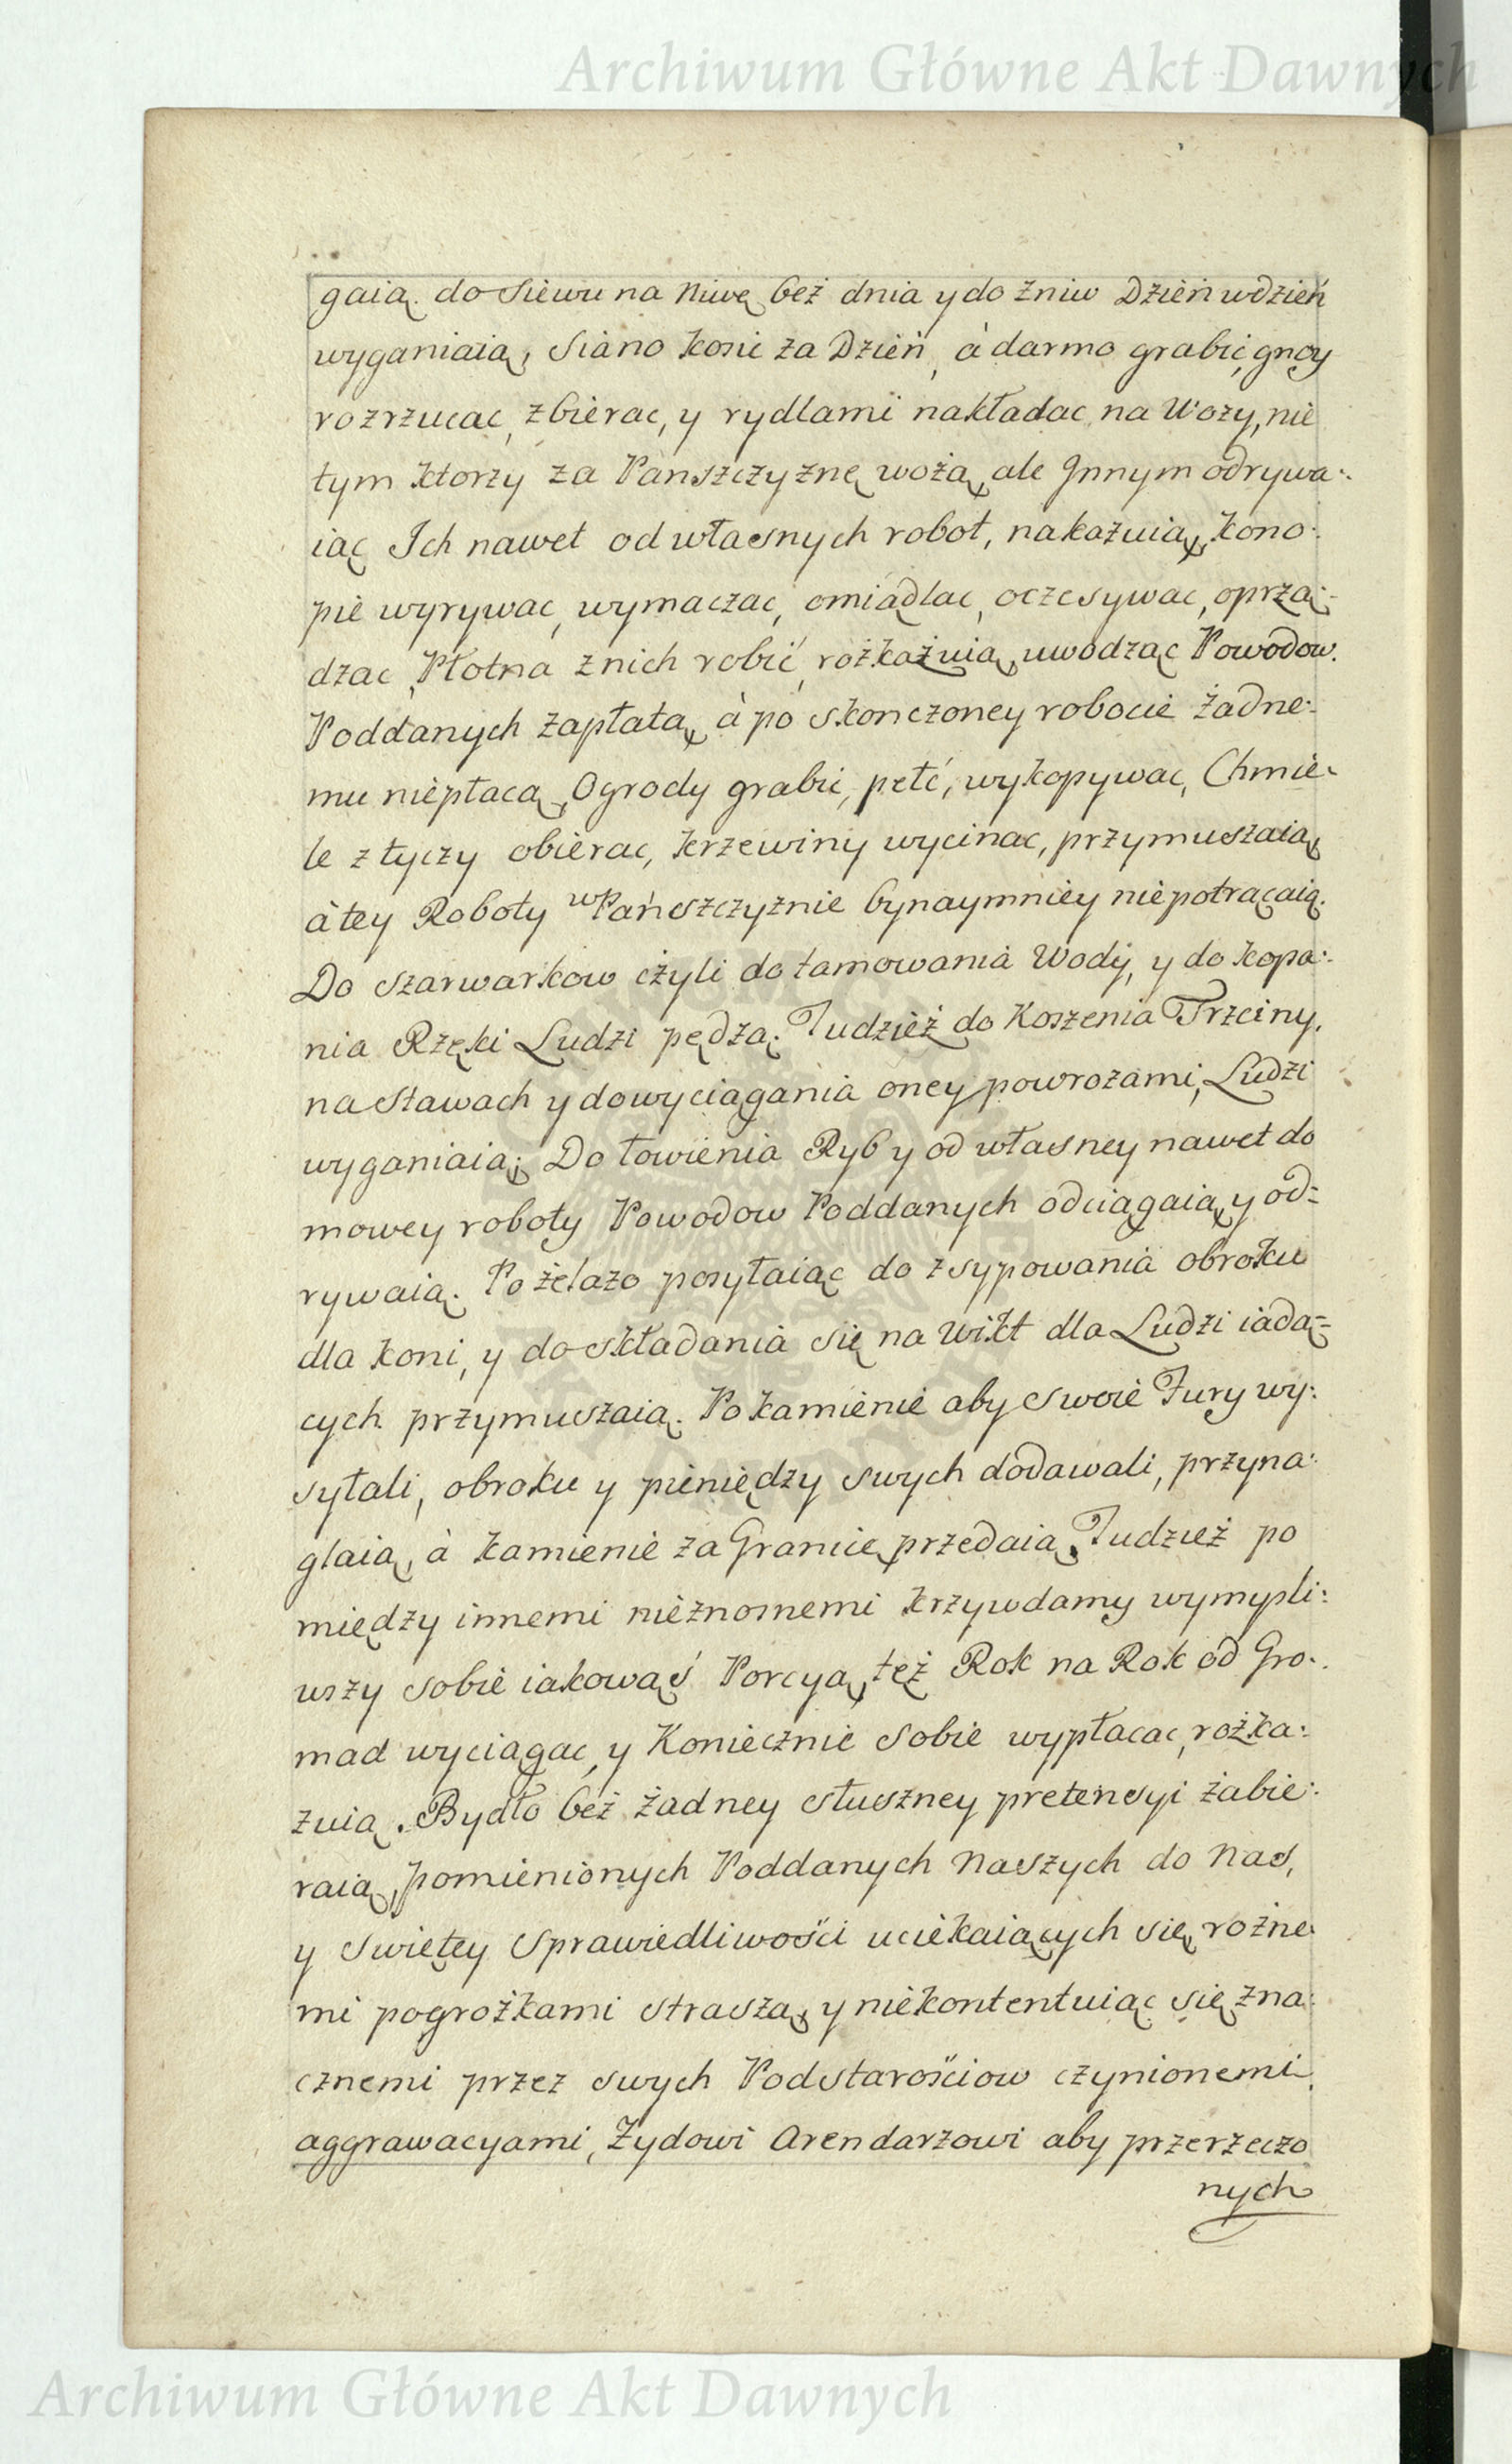 Archiwum Główne Akt Dawnych
gaią do Siewu na Niwę beż dnia y do żniw Dżień wdzień
wyganiaią, Siano kosic ża Dżień, à darmo grabic, gnoy
rozrzucac, zbierac, y rydlami nakładac na Wozy, nie
tym ktorzy za Panszczyznę wożą, ale Jnnym odrywa:
iąc Jch nawet od własnych robot, nakażuią, kono:
pie wyrywac, wymaczac, omiądlac, oczesywac, oprzą:
dzac, Płotna znich robić, rożkażuią, uwodząc Powodow
Poddanych żapłatą, à po skonczoney robocie żadne:
mu niepłacą, Ogrody grabic, pełć, wykopywac, Chmie:
le z tyczy obierac, krzewiny wycinac, przymuszaią,
à tey Roboty w Pańszczyznie bynaymniey niepotrącaią.
Do szarwarkow cżyli do tamowania Wody, y do kopa:
nia Rzęki Ludzi pędzą. Tudzież do Koszenia Trzciny,
na Stawach y dowyciągania oney powrozami, Ludzi
wyganiaią; Do łowienia Ryb y od własney nawet do
mowey roboty Powodow Poddanych odciągaią, y od:
rywaią. Po żelazo posyłaiąc do zsypowania obroku
dla koni, y do składania się na Wikt dla Ludzi iadą:
cych przymuszaią. Po kamienie aby swoie Fury wy:
syłali, obroku y pieniędzy swych dodawali, przyna:
glaią, à kamienie za Granicę przedaią, Tudzież po
między innemi nieżnomemi krzywdamy wymyśli:
wszy sobie iakowąś Porcyą, też Rok na Rok od Gro:
mad wyciągac, y Koniecznie sobie wypłacac, rożka:
zuią. Bydło beż żadney słuszney pretensyi żabie:
raią, pomienionych Poddanych Naszych do Nas,
y swiętey Sprawiedliwości uciekaiących się, rożne
mi pogrożkami straszą, y niekontentuiąc się zna:
cznemi przez swych Podstarościow czynionemi
aggrawacyami, Żydowi Arendarzowi aby przerzeczo
nych
Archiwum Główne Akt Dawnych